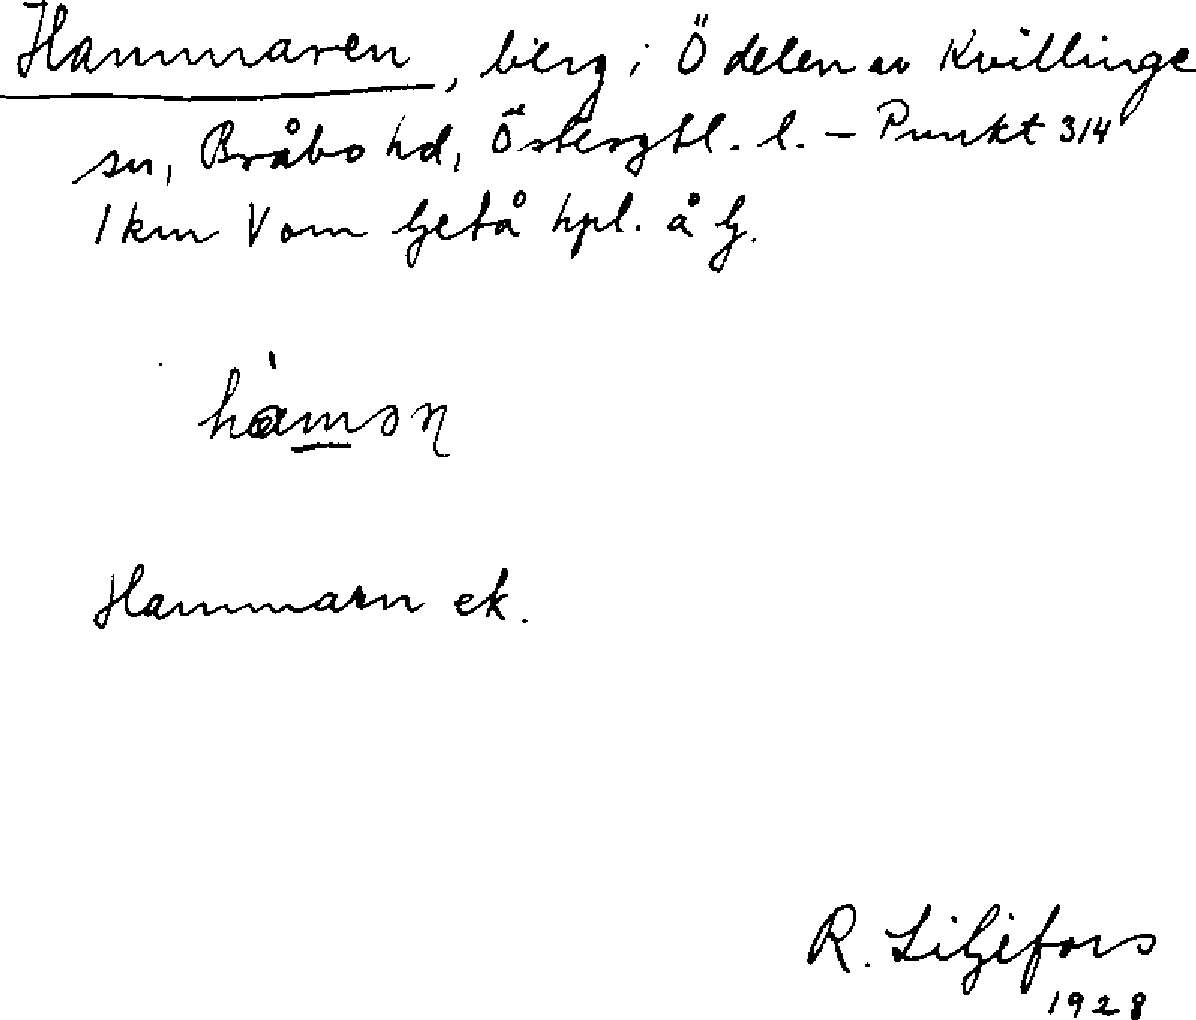 Hammaren, berg i Ö delen av Kvillinge
sn, Bråbo hd, Östergtl. l. – Punkt 314
1 km V om Getå hpl. å G.
hàmən
Hammarn ek.
R. Liljefors
1928